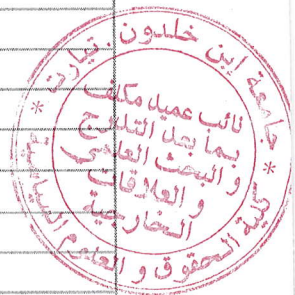 جامعة ابن خلدون . تيارت
* كلية الحقوق و العلوم السياسية *
نائب عميد مكلف
بما بعد التدرج
و البحث العلمي
و العلاقات
الخارجية